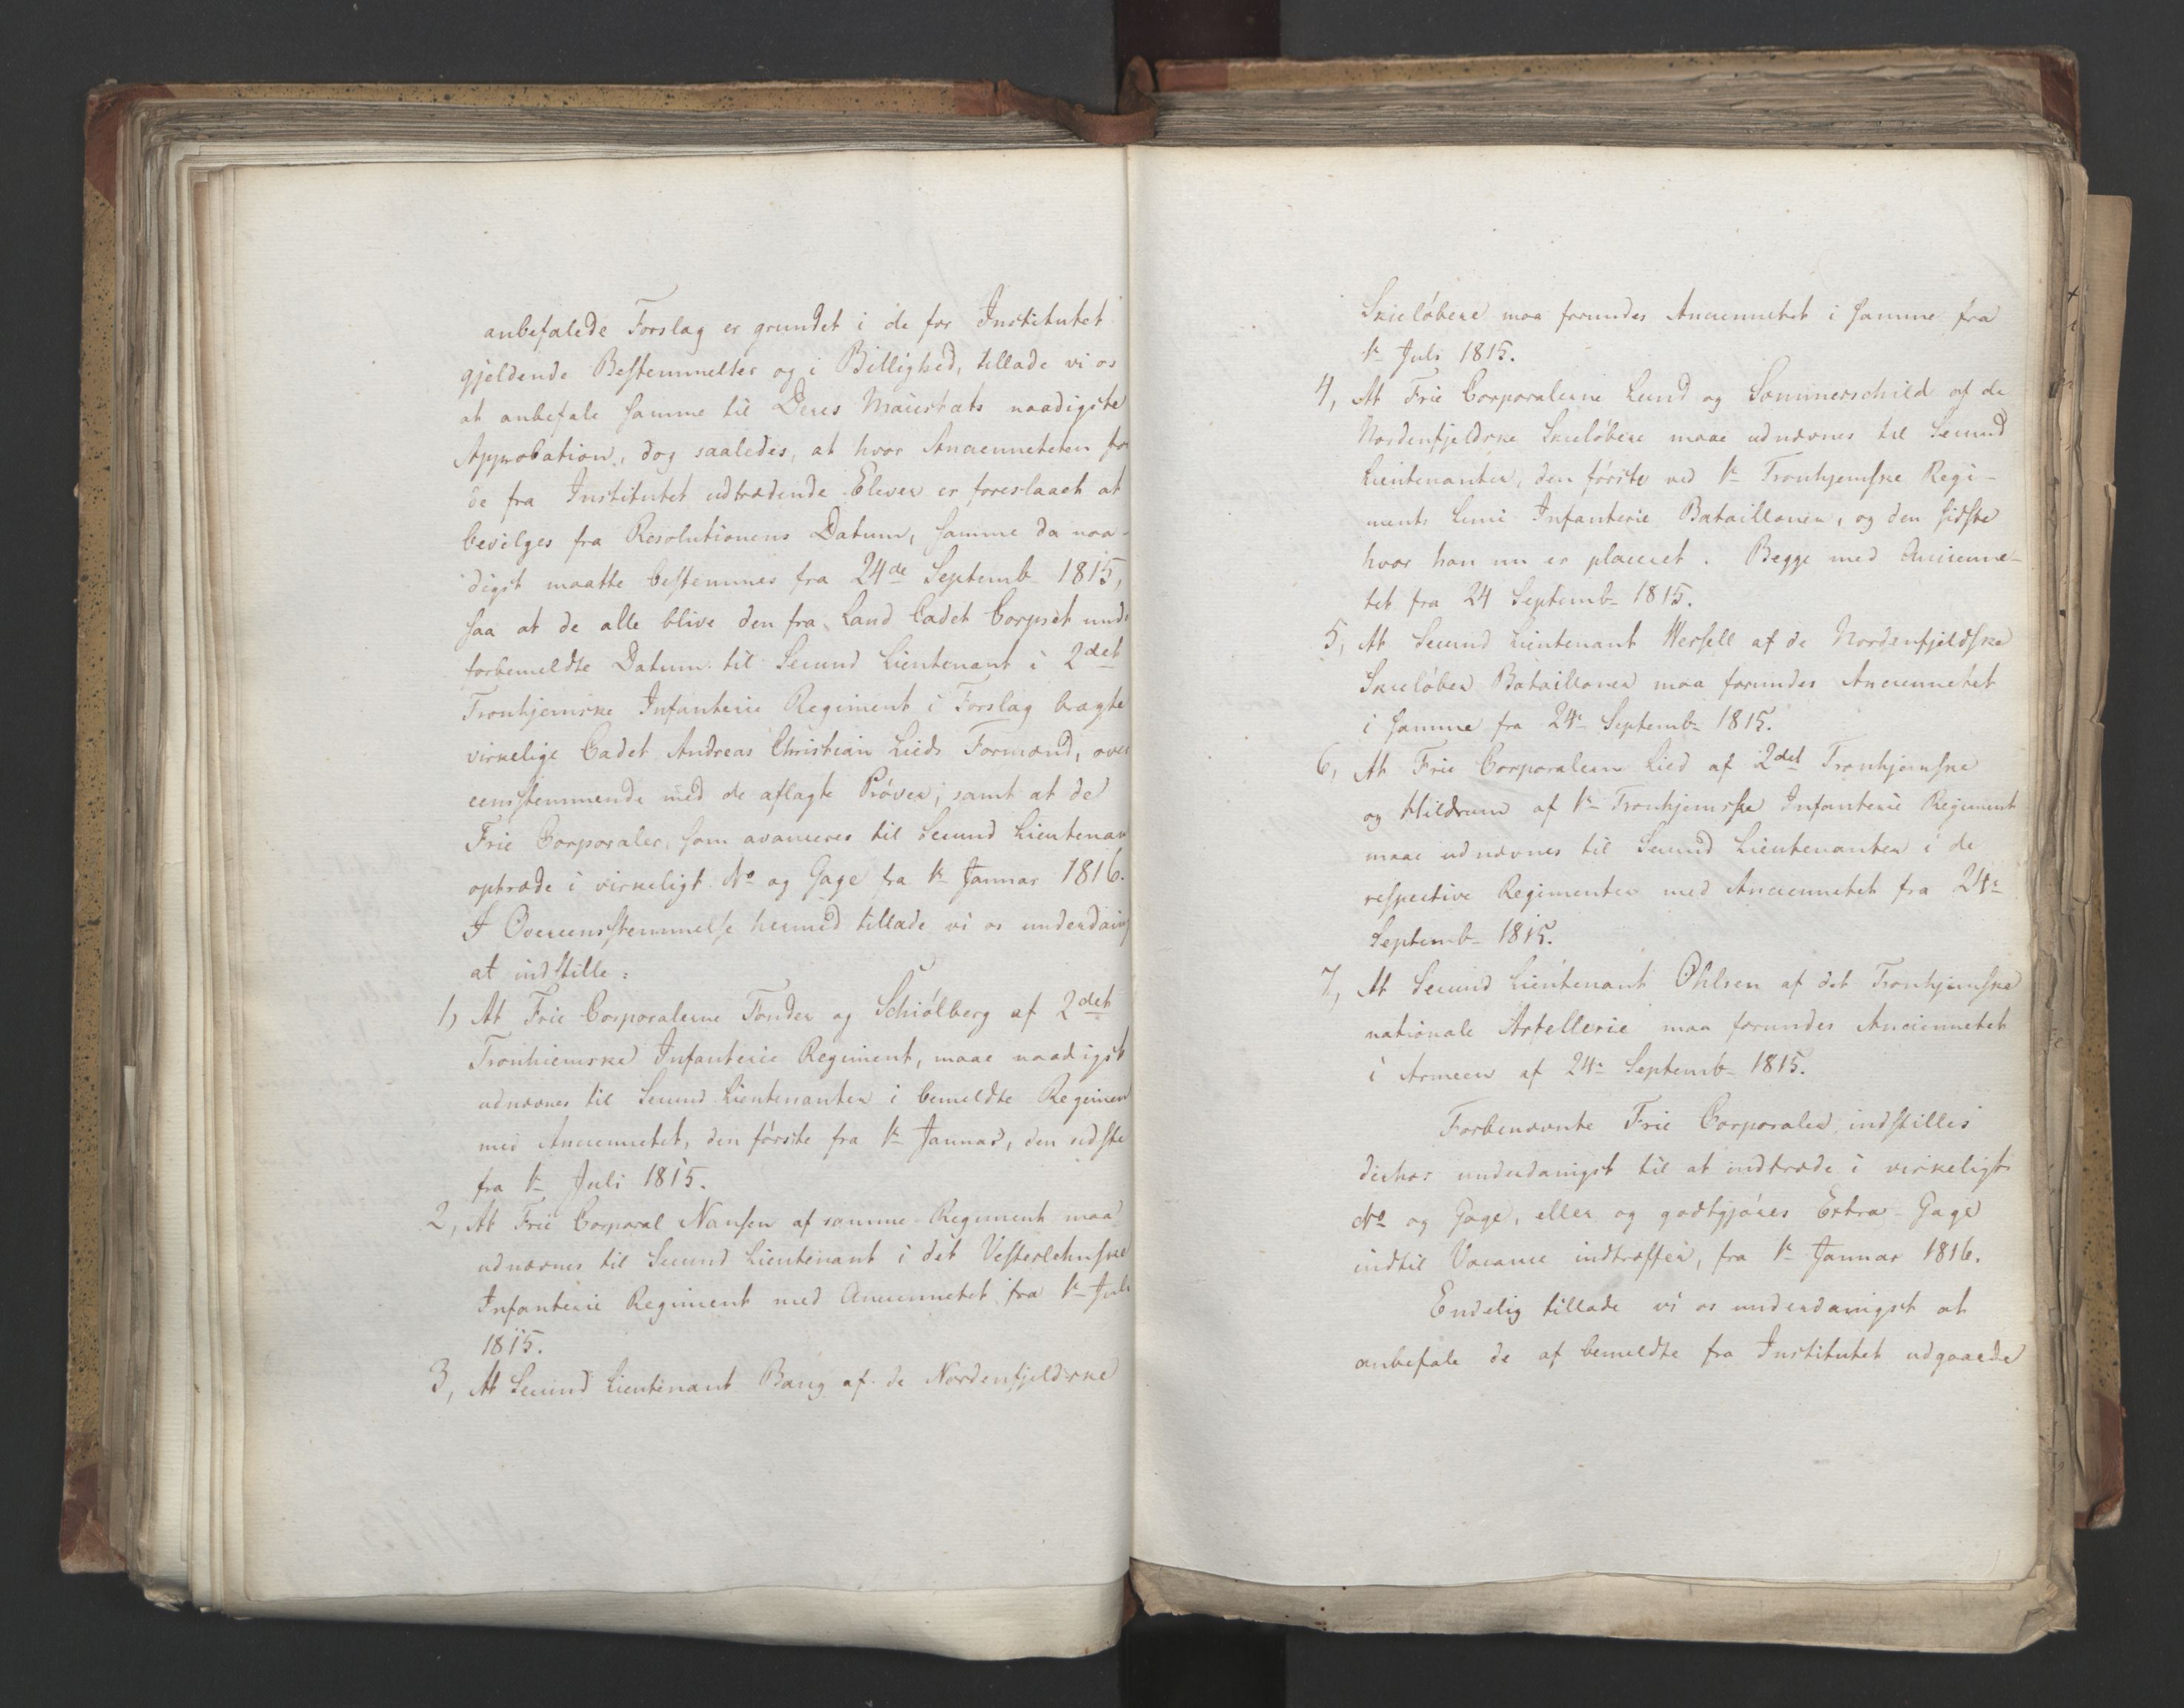 anbefalede Forslag er grundet i de for Institutet
gjeldende Bestemmelser og i Billighed, tillade vi os
at anbefale samme til Deres Maiestæts naadigste
Approbation, dog saaledes, at hvor Ancienneteten for
de fra Institutet udtrædende Elever er foreslaaet at
bevilges fra Resolutionens Datum, samme da naa-
digst maatte bestemmes fra 24de Septemb 1815,
saa at de alle blive den fra Land Cadet Corpset und
forbemeldte Datum til Secund Lieutenant i 2det
Tronhjemske Infanterie Regiment i Forslag bragte
virkelige Cadet Andreas Christian Lieds Formænd, over
eensstemmende med de aflagte Prøver, samt at de
Frie Corporaler, som avancerer til Secund Lieutenan
optræde i virkeligt No og Gage fra 1e Januar 1816.
I Overeensstemmelse hermed tillade vi os underdanig
at indstille:
1, At Frie Corporalerne Tonder og Schiölberg af 2det
Tronhiemske Infanterie Regiment, maae naadigst
udnævnes til Secund Lieutenanter i bemeldte Regimen
med Anciennetet, den første fra 1e Januar, den sidste
fra 1e Juli 1815.
2, At Frie Corporal Nansen af samme Regiment maa
udnævnes til Secund Lieutenant i det Vesterlehnske
Infanterie Regiment med Anciennetet fra 1e Juli
1815.
3, At Secund Lieutenant Bang af de Nordenfjeldske
Skieløbere maa forundes Anciennetet i samme fra
1e Juli 1815.
4, At Frie Corporalerne Lund og Sommerschild af de
Nordenfjeldske Skieløbere maae udnævnes til Secund
Lieutenanter, den første ved 1e Tronhjemske Regi-
ments Linie Infanterie Batailloner, og den sidste
hvor han nu er placeret. Begge med Ancienne-
tet fra 24 Septemb 1815.
5, At Secund Lieutenant Wersell af de Nordenfjeldske
Skieløber Batailloner maa forundes Anciennetet
i samme fra 24e Septemb 1815.
6, At Frie Corporalerne Lied af 2det Tronhjemske
og Hildrum af 1e Tronhjemske Infanterie Regiment
maae udnævnes til Secund Lieutenanter i de
respective Regimenter med Anciennetet fra 24e
Septemb 1815.
7, At Secund Lieutenant Ohlsen af det Tronhjemske
nationale Artellerie maa forundes Anciennetet
i Armeen af 24e Septemb 1815.
Forbenævnte Frie Corporaler indstilles
derhos underdanigst til at indtræde i virkeligt
No og Gage, eller og godtgjøres Extra-Gage
indtil Vacance indtræffer, fra 1e Januar 1816.
Endelig tillade vi os underdanigst at
anbefale de af bemeldte fra Institutet udgaaede